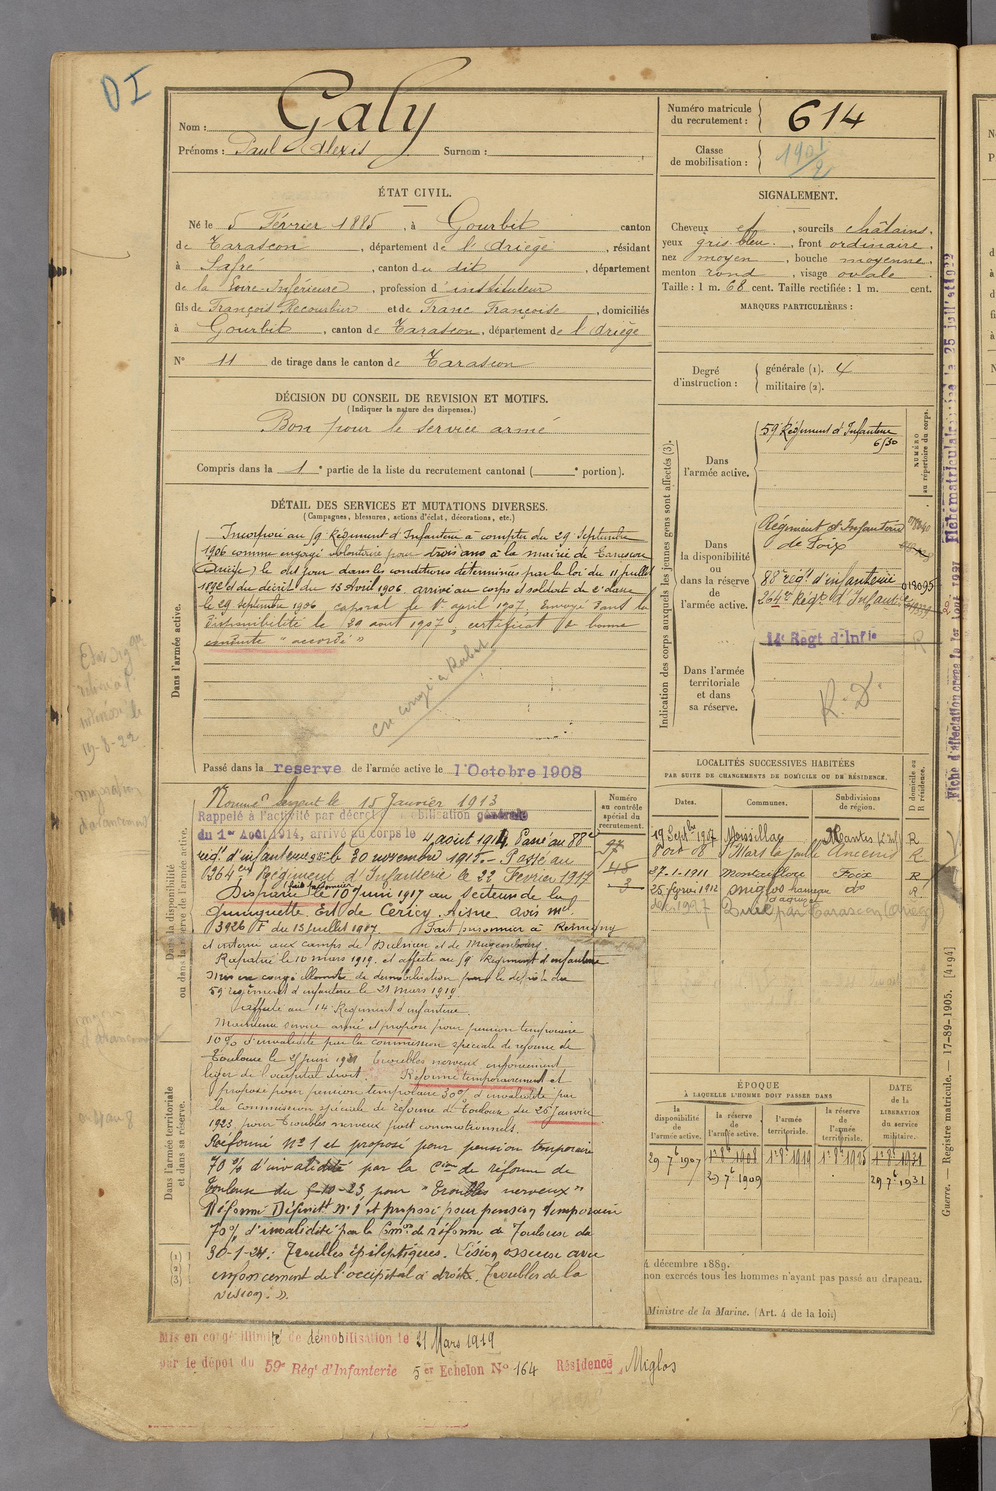 DI
Nom : Galy
Prénoms : Paul Alexis Surnom :
Numéro matricule du recrutement : 614
Classe de mobilisation : 1901/2
ÉTAT CIVIL.
Né le 5 Février 1885, à Gourbit canton
de Tarascon, département de l'Ariège, résidant
à Safré, canton du dit, département
de la Loire-Inférieure, profession d'instituteur
fils de François et de Franc Françoise, domiciliés
à Gourbit, canton de Tarascon, département de l'Ariège
N° 11 de tirage dans le canton de Tarascon
SIGNALEMENT.
Cheveux et, sourcils châtains.
yeux gris-bleu, front ordinaire,
nez moyen, bouche moyenne,
menton rond, visage ovale.
Taille : 1 m. 68 cent. Taille rectifiée : 1 m. cent.
MARQUES PARTICULIÈRES :
Degré d'instruction : générale (1). 4
militaire (2).
DÉCISION DU CONSEIL DE REVISION ET MOTIFS.
(Indiquer la nature des dispenses.)
Bon pour le service armé
Compris dans la 1e partie de la liste du recrutement cantonal ( e portion).
DÉTAIL DES SERVICES ET MUTATIONS DIVERSES.
(Campagnes, blessures, actions d'éclat, décorations, etc.)
Dans l'armée active.
Incorporé au 59 Régiment d'Infanterie à compter du 29 Septembre
1906 comme engagé volontaire pour trois ans à la mairie de Tarascon
(Ariège) le dit jour dans les conditions déterminées par la loi du 11 juillet
1892 et du décret du 13 Avril 1906. arrivé au corps et soldat de 2e classe
le 29 septembre 1906 caporal le 1er april 1907, Envoyé dans la
disponibilité le 29 août 1907, certificat de bonne
conduite "accordé"
en congé à Rabat
Passé dans la reserve de l'armée active le 1 Octobre 1908
Indication des corps auxquels les jeunes gens sont affectés (3).
NUMÉRO au répertoire du corps.
Dans l'armée active.
59 Régiment d'Infanterie
6/30
Dans la disponibilité ou dans la réserve de l'armée active.
Régiment d'Infanterie
de Foix
88e régt d'infanterie
019095
264me Régt d'Infanterie
14e Régt d'Infie
R
Dans l'armée territoriale et dans sa réserve.
R.D.
Fiche matriculaire
Fiche d'affectation
LOCALITÉS SUCCESSIVES HABITÉES
PAR SUITE DE CHANGEMENTS DE DOMICILE OU DE RÉSIDENCE.
Dates. Communes. Subdivisions de région. D domicile ou R résidence.
19 Septbre 1907 Moissillac Nantes (L. Inf) R
8 oct 08 St Mars la Jaille Ancenis R
27-1-1911 Montcaillou Foix R
25 fevrier 1912 Miglos hameau do R
Tarascon (Ariège)
Dans la disponibilité ou dans la réserve de l'armée active.
Numéro au contrôle spécial du recrutement.
97
48
3
Nommé Sergent le 15 Janvier 1913
Rappelé à l'activité par décret mobilisation générale
du 1er Août 1914, arrivé au corps le 4 août 1914 Passé au 88e
régt d'infanterie le 30 novembre 1915.- Passé au
264me Régiment d'Infanterie le 22 Février 1917
Disparu (fait prisonnier) le 10 juin 1917 au Secteur de la
Guinguette Est de Cerisy Aisne avis mel
3926 F du 13 juillet 1917. Fait prisonnier à Remigny
et interné aux camps de Dulmen et de
Rapatrié le 10 mars 1919. et affecté au 59 Régiment d'infanterie
Mis en congé illimité de démobilisation par le dépôt du
59 régiment d'infanterie le 21 mars 1919
affecté au 14 Régiment d'infanterie.
Maintenu service armé et proposé pour pension temporaire
10% d'invalidité par la commission spéciale de réforme de
Toulouse le 27 juin 1921 Troubles nerveux enfoncement
léger de l'occipital droit. Réformé temporairement et
proposé pour pension temporaire 30% d'invalidité par
la commission spéciale de réforme de Toulouse du 25 janvier
1923, pour troubles nerveux post commotionnels.
Réformé N° 1 et proposé pour pension temporaire
70% d'invalidité par la Cion de réforme de
Toulouse du 5-10-23, pour "Troubles nerveux"
Réformé Définitt N° 1 et proposé pour pension temporaire
70% d'invalidité par la Comon de réforme de Toulouse du
30-1-24: Troubles épileptiques. Lésion osseuse avec
enfoncement de l'occipital à droite. Troubles de la
vision. ".
Dans l'armée territoriale et dans sa réserve.
(1)
(2)
(3)
ÉPOQUE
À LAQUELLE L'HOMME DOIT PASSER DANS
la disponibilité de l'armée active. la réserve de l'armée active. l'armée territoriale. la réserve de l'armée territoriale.
DATE de la LIBERATION du service militaire.
29 7b 1907 1er 8b 1908 1er 8b 1919 1er 8b 1925 1er 8b 1931
29 7b 1909 29 7b 1931
4 décembre 1889.
non exercés tous les hommes n'ayant pas passé au drapeau.
Ministre de la Marine. (Art. 4 de la loi)
Guerre. — Registre matricule. — 17-89-1905. [4194]
Mis en congé illimité de démobilisation le 21 Mars 1919
par le dépôt du 59e Régt d'Infanterie 5er Echelon N° 164 Résidence Miglos